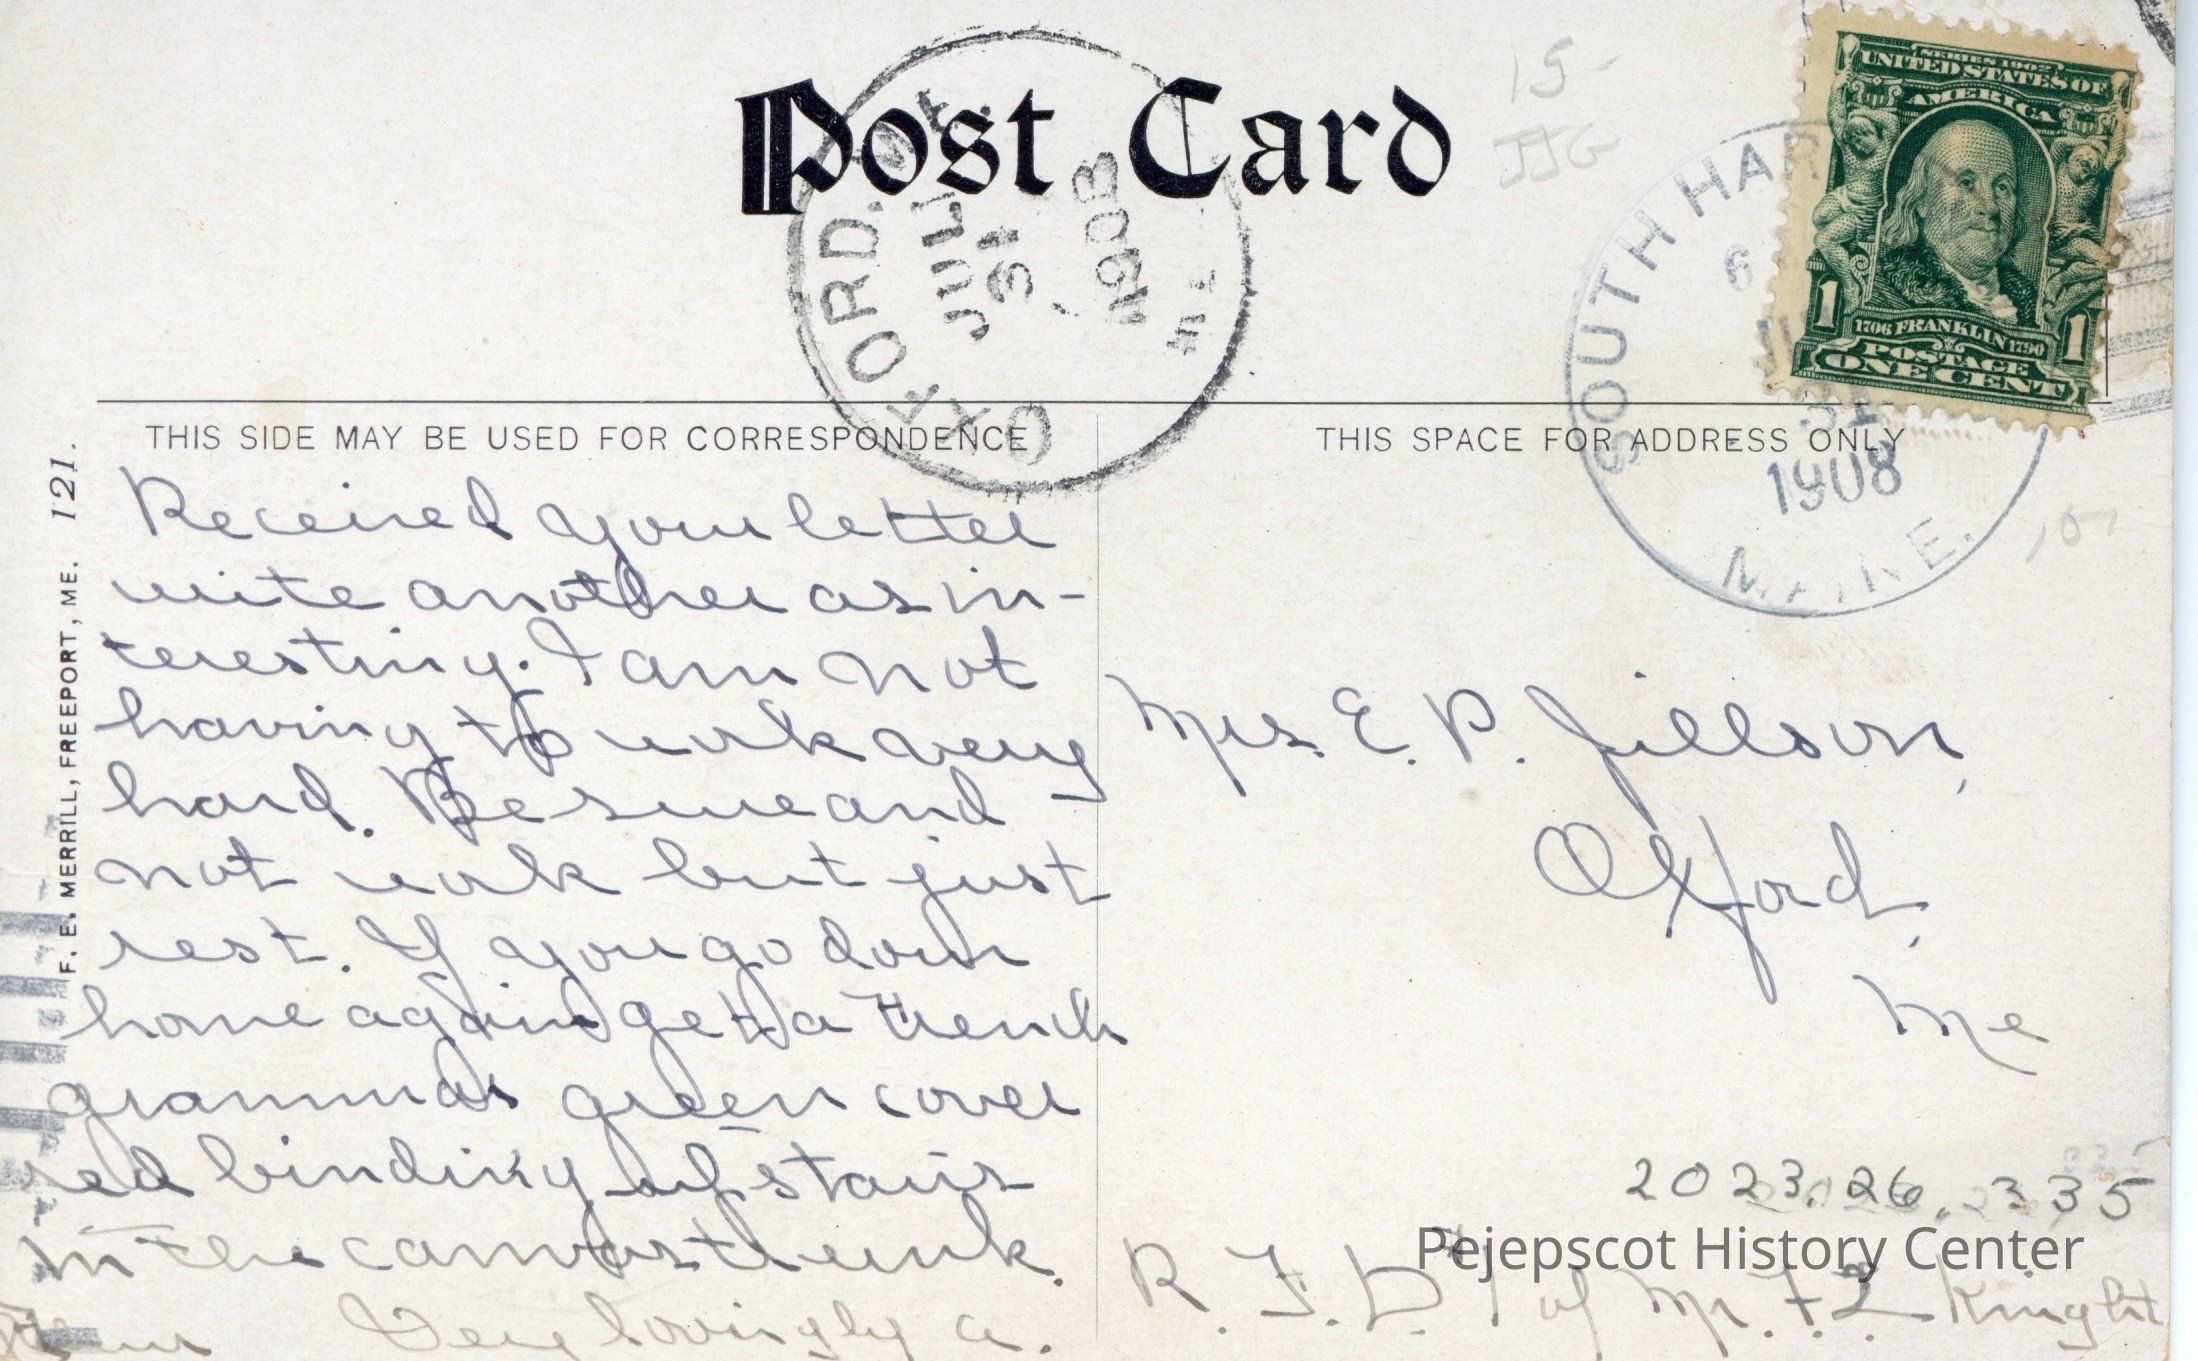 Post Card
OXFORD. ME.
JUL
31
1908
15-
JJG
SOUTH HAR
6
31
1908
MAINE.
SERIES 1902
UNITED STATES OF
AMERICA
1 1706 FRANKLIN 1790 1
POSTAGE
ONE CENT
THIS SIDE MAY BE USED FOR CORRESPONDENCE
THIS SPACE FOR ADDRESS ONLY
F. E. MERRILL, FREEPORT, ME. 121.
Received your letter
write another as in-
teresting. I am not
having to work very
hard. Be sure and
not work but just
rest. If you go down
home again get a French
grammar green cover
ed binding up stairs
in the canvas trunk.
Very lovingly a.
Mrs. E. P. Jillson,
Oxford,
Me
2023.26.335
Pejepscot History Center
R. F. D. #1 of Mr. F. L Knight